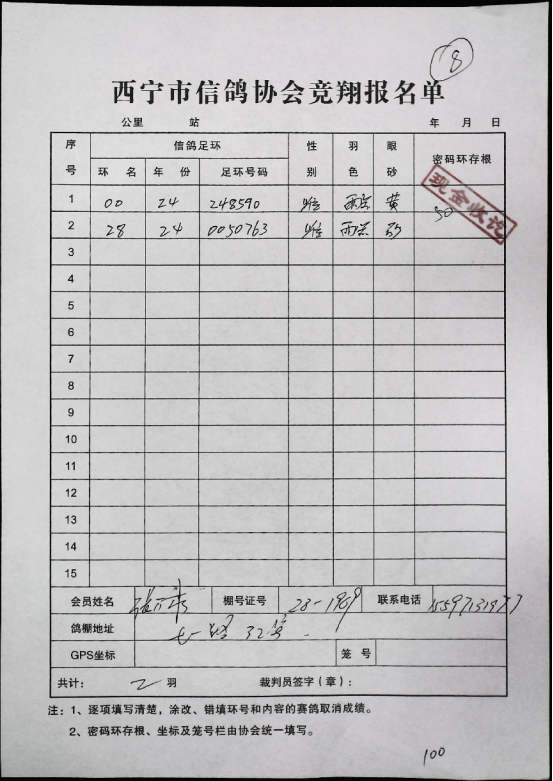 8
西宁市信鸽协会竞翔报名单
公里 站 年 月 日
序号 信鸽足环 性别 羽色 眼砂 密码环存根
环名 年份 足环号码
1 00 24 248590 雌 雨点 黄 50
现金收讫
2 28 24 0050763 雌 雨点 砂
3
4
5
6
7
8
9
10
11
12
13
14
15
会员姓名 张 棚号证号 28-1969 联系电话
鸽棚地址 七一路 32号
GPS坐标 笼号
共计: 2 羽 裁判员签字(章):
注:1、逐项填写清楚,涂改、错填环号和内容的赛鸽取消成绩。
2、密码环存根、坐标及笼号栏由协会统一填写。
100